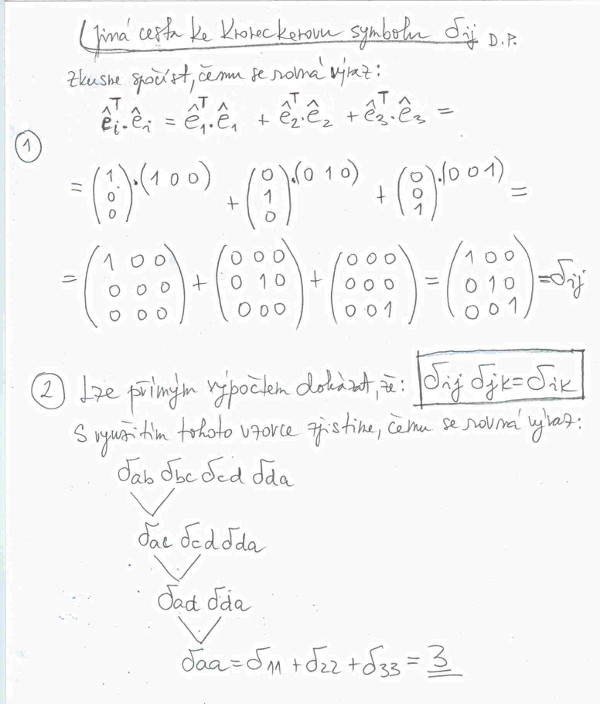 Jiná cesta ke Kroneckerovu symbolu δij D.P.
Zkusme spočíst, čemu se rovná výraz:
êi^T·êi = ê1^T·ê1 + ê2^T·ê2 + ê3^T·ê3 =
①
= (1 0 0)·(1 0 0) + (0 1 0)·(0 1 0) + (0 0 1)·(0 0 1) =
= (1 0 0 / 0 0 0 / 0 0 0) + (0 0 0 / 0 1 0 / 0 0 0) + (0 0 0 / 0 0 0 / 0 0 1) = (1 0 0 / 0 1 0 / 0 0 1) = δij
② Lze přímým výpočtem dokázat, že: δij δjk = δik
S využitím tohoto vzorce zjistíme, čemu se rovná výraz:
δab δbc δcd δda
δac δcd δda
δad δda
δaa = δ11 + δ22 + δ33 = 3